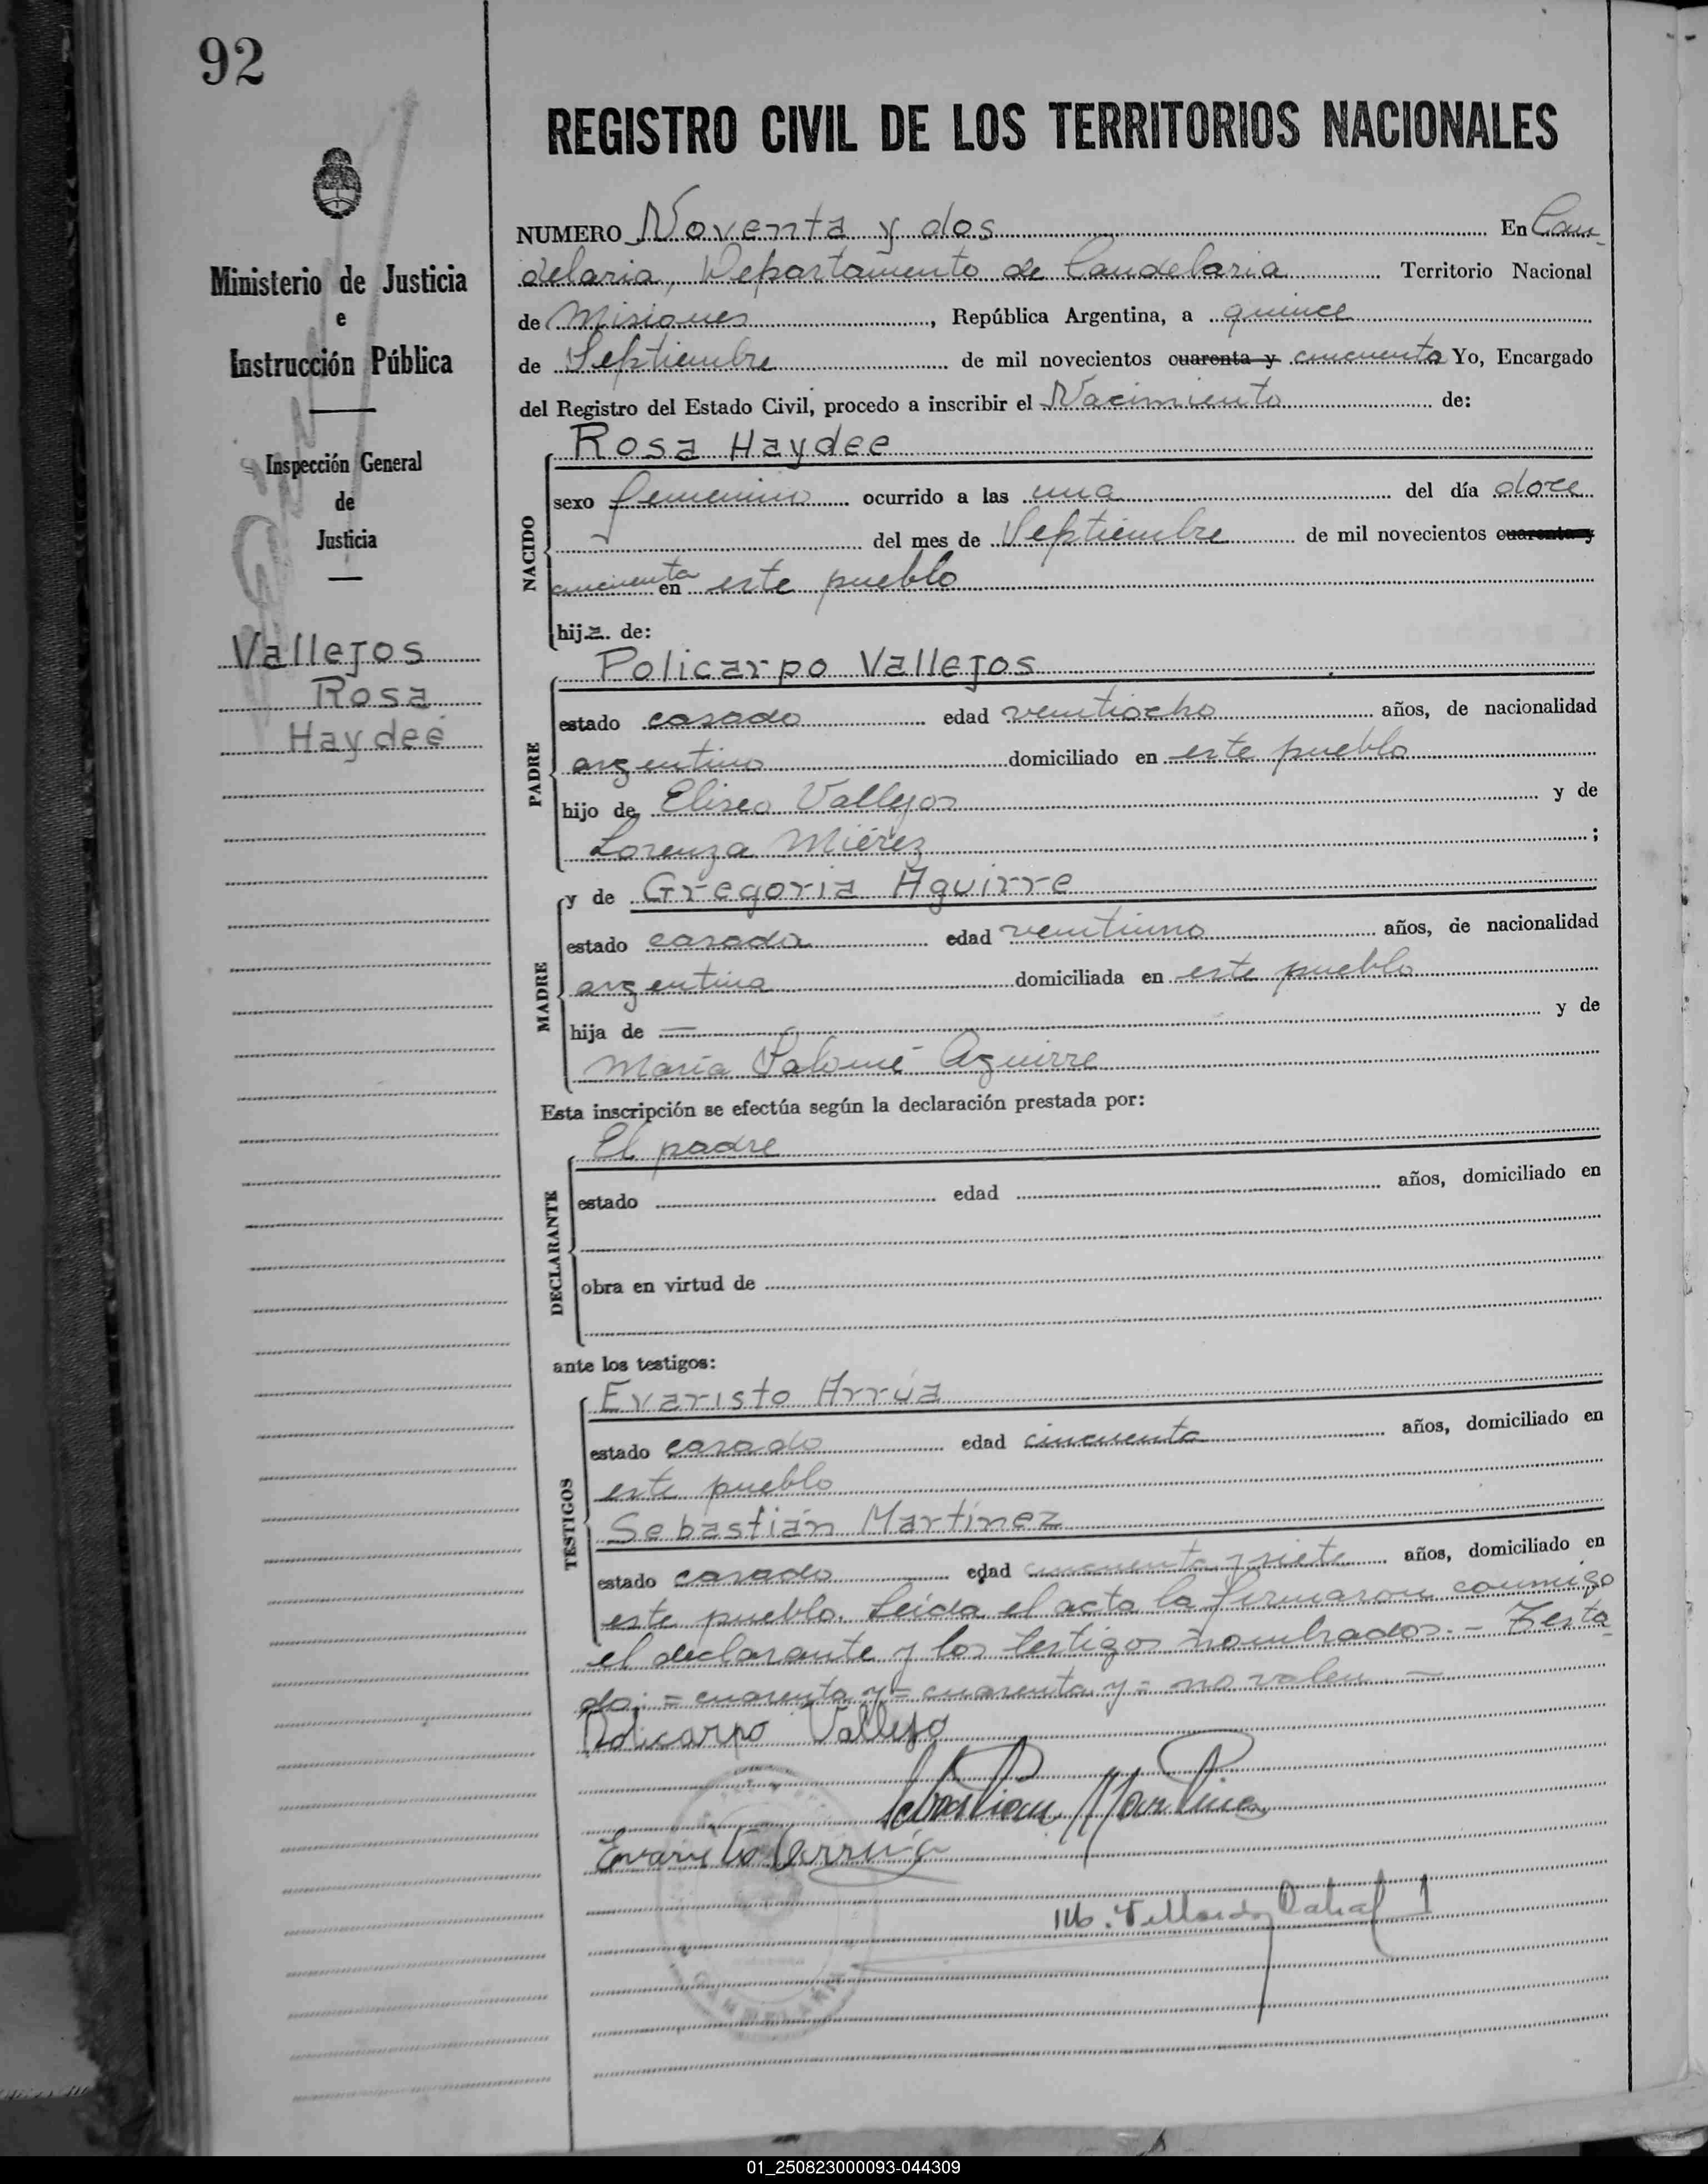 92
REGISTRO CIVIL DE LOS TERRITORIOS NACIONALES
Ministerio de Justicia
e
Instrucción Pública
Inspección General
de
Justicia
Vallejos
Rosa
Haydeé
NUMERO Noventa y dos En Can-
delaria, Departamento de Candelaria Territorio Nacional
de Misiones, República Argentina, a quince
de Septiembre de mil novecientos cuarenta y cincuenta Yo, Encargado
del Registro del Estado Civil, procedo a inscribir el Nacimiento de:
NACIDO
Rosa Haydee
sexo femenino ocurrido a las una del día doce
del mes de Septiembre de mil novecientos cuarenta y
cincuenta en este pueblo
hija de:
PADRE
Policarpo Vallejos
estado casado edad ventiocho años, de nacionalidad
argentino domiciliado en este pueblo
hijo de Eliseo Vallejos y de
Lorenza Miérez ;
MADRE
y de Gregoria Aguirre
estado casada edad ventiuno años, de nacionalidad
argentina domiciliada en este pueblo
hija de — y de
María Salomé Aguirre
Esta inscripción se efectúa según la declaración prestada por:
DECLARANTE
El padre
estado edad años, domiciliado en
obra en virtud de
ante los testigos:
TESTIGOS
Evaristo Arrúa
estado casado edad cincuenta años, domiciliado en
este pueblo
Sebastián Martínez
estado casado edad cincuenta y siete años, domiciliado en
este pueblo. Leída el acta la firmaron conmigo
el declarante y los testigos nombrados.- Testa-
do: = cuarenta y = cuarenta y = no valen —
Policarpo Vallejo
Sebastian Martinez
Evaristo Arrúa
CANDELARIA
01_250823000093-044309